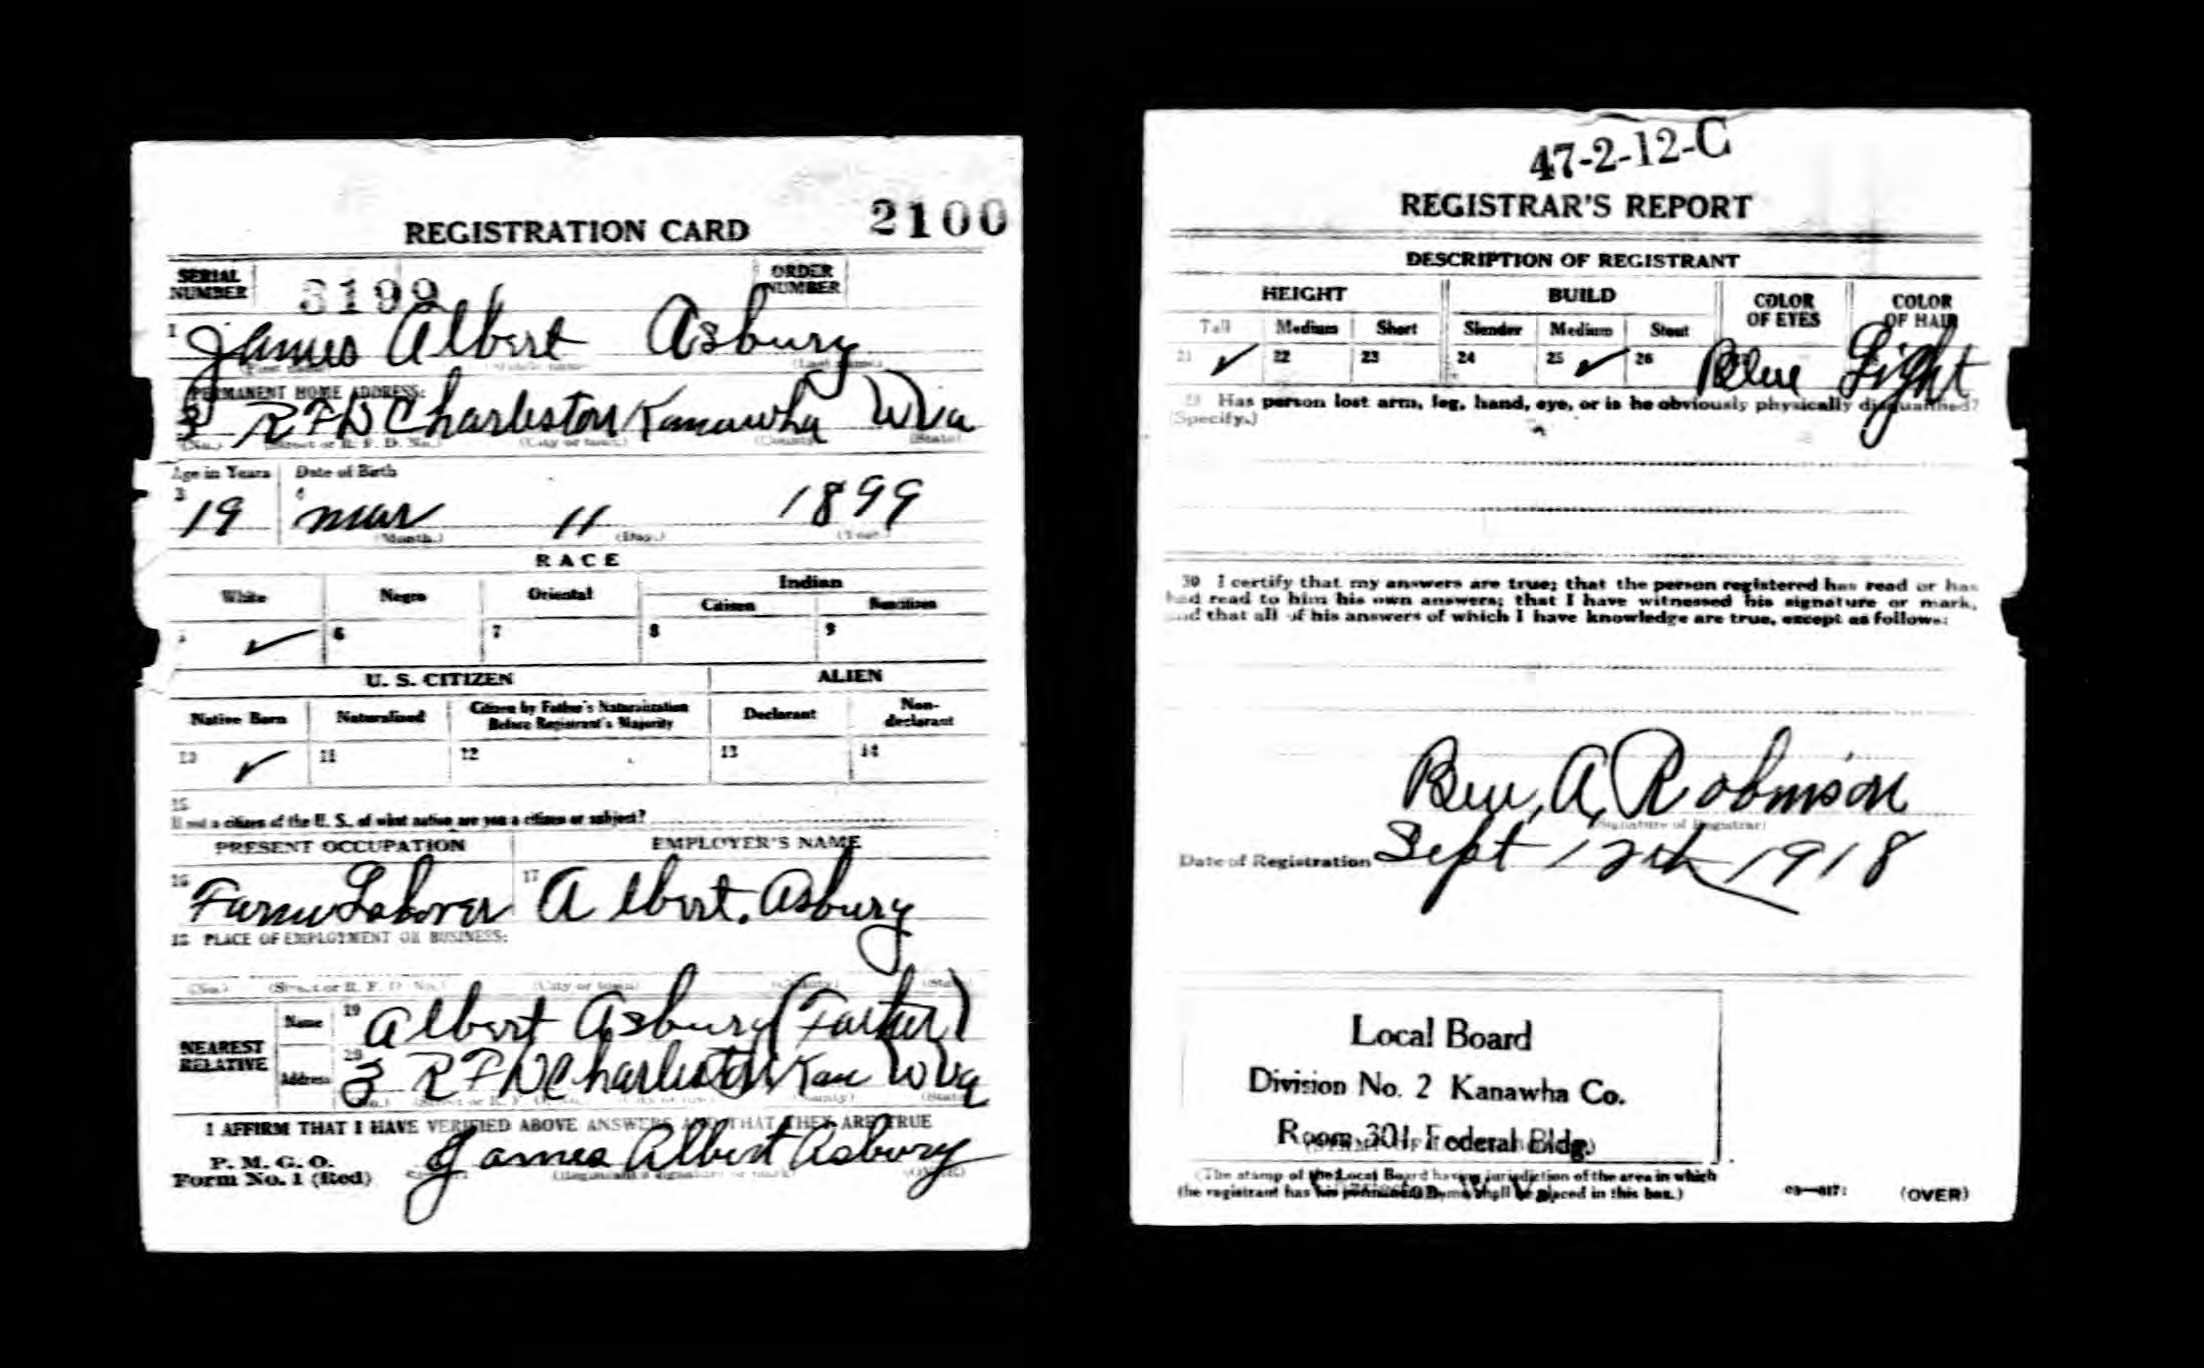 2100
REGISTRATION CARD
SERIAL NUMBER 3199 ORDER NUMBER
1 James Albert Asbury
(First name) (Middle name) (Last name)
PERMANENT HOME ADDRESS:
3 RFD Charleston Kanawha WVa
(No.) (Street or R. F. D. No.) (City or town) (County) (State)
Age in Years Date of Birth
3 19 4 Mar 11 1899
(Month.) (Day.) (Year.)
RACE
White Negro Oriental Indian
Citizen Noncitizen
5 ✓ 6 7 8 9
U. S. CITIZEN ALIEN
Native Born Naturalized Citizen by Father's Naturalization Before Registrant's Majority Declarant Non-declarant
10 ✓ 11 12 13 14
15
If not a citizen of the U. S., of what nation are you a citizen or subject?
PRESENT OCCUPATION EMPLOYER'S NAME
16 Farm Laborer 17 Albert Asbury
18 PLACE OF EMPLOYMENT OR BUSINESS:
(No.) (Street or R. F. D. No.) (City or town) (County) (State)
NEAREST RELATIVE
Name 19 Albert Asbury (Father)
Address 20 3 RFD Charleston Kan WVa
(No.) (County) (State)
I AFFIRM THAT I HAVE VERIFIED ABOVE ANSWERS AND THAT THEY ARE TRUE
P. M. G. O.
Form No. 1 (Red) James Albert Asbury
(Registrant's signature or mark) (OVER)
47-2-12-C
REGISTRAR'S REPORT
DESCRIPTION OF REGISTRANT
HEIGHT BUILD COLOR OF EYES COLOR OF HAIR
Tall Medium Short Slender Medium Stout
21 ✓ 22 23 24 25 ✓ 26 Blue Light
29 Has person lost arm, leg, hand, eye, or is he obviously physically disqualified?
(Specify.)
30 I certify that my answers are true; that the person registered has read or has
had read to him his own answers; that I have witnessed his signature or mark,
and that all of his answers of which I have knowledge are true, except as follows:
Ben, A, Robinson
(Signature of Registrar)
Date of Registration Sept 12th 1918
Local Board
Division No. 2 Kanawha Co.
Room 301 Federal Bldg.
(The stamp of the Local Board having jurisdiction of the area in which
the registrant has his permanent home shall be placed in this box.)
(OVER)